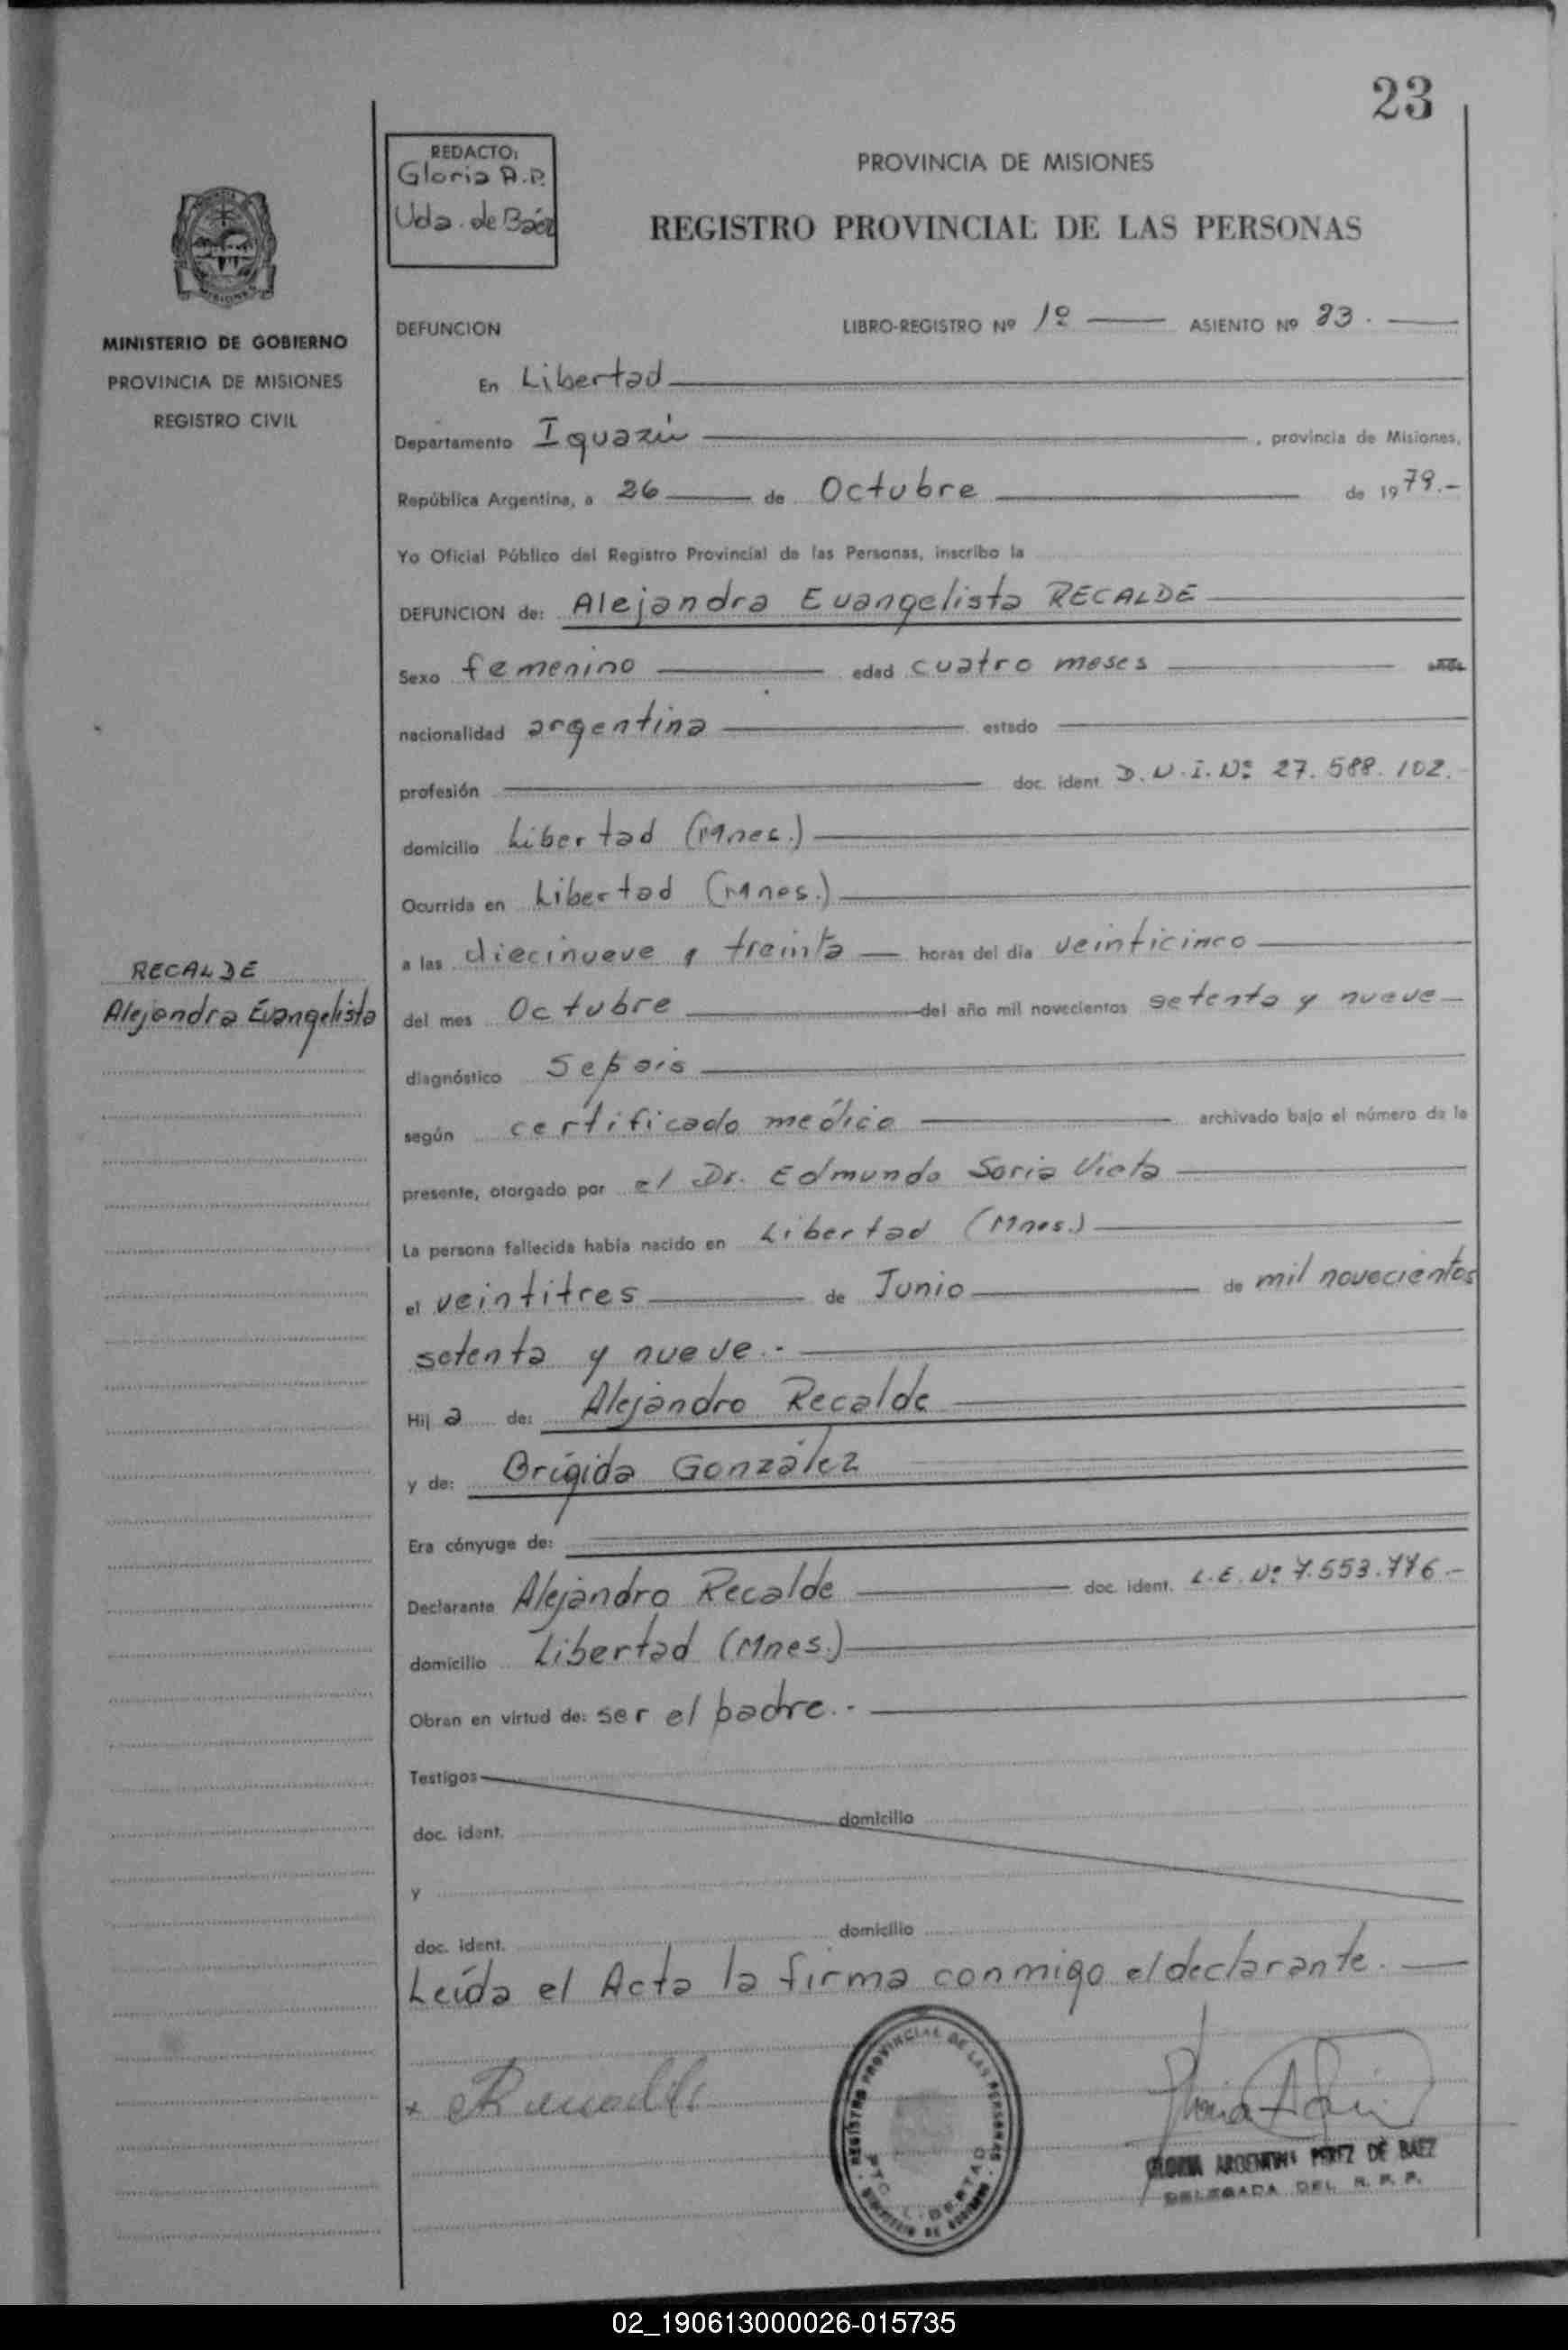 23
REDACTO:
Gloria A.P.
Vda. de Báez
PROVINCIA DE MISIONES
REGISTRO PROVINCIAL DE LAS PERSONAS
MISIONES
MINISTERIO DE GOBIERNO
PROVINCIA DE MISIONES
REGISTRO CIVIL
DEFUNCION LIBRO-REGISTRO Nº 1º ASIENTO Nº 23.
En Libertad
Departamento Iguazú , provincia de Misiones,
República Argentina, a 26 de Octubre de 1979.-
Yo Oficial Público del Registro Provincial de las Personas, inscribo la
DEFUNCION de: Alejandra Evangelista RECALDE
Sexo femenino edad cuatro meses
nacionalidad argentina estado
profesión doc. ident. D.N.I. Nº 27.588.102.-
domicilio Libertad (Mnes.)
Ocurrida en Libertad (Mnes.)
a las diecinueve y treinta horas del día veinticinco
RECALDE
Alejandra Evangelista
del mes Octubre del año mil novecientos setenta y nueve
diagnóstico Sepsis
según certificado médico archivado bajo el número de la
presente, otorgado por el Dr. Edmundo Soria Vieta
La persona fallecida había nacido en Libertad (Mnes.)
el veintitres de Junio de mil novecientos
setenta y nueve.-
Hij a de: Alejandro Recalde
y de: Brígida González
Era cónyuge de:
Declarante Alejandro Recalde doc. ident. L.E. Nº 7.553.776.-
domicilio Libertad (Mnes.)
Obran en virtud de: ser el padre.-
Testigos
doc. ident. domicilio
y
doc. ident. domicilio
Leída el Acta la firma conmigo el declarante.
REGISTRO PROVINCIAL DE LAS PERSONAS
PTO. LIBERTAD
MINISTERIO DE GOBIERNO
GLORIA ARGENTINA PEREZ DE BAEZ
DELEGADA DEL R. P. P.
02_190613000026-015735